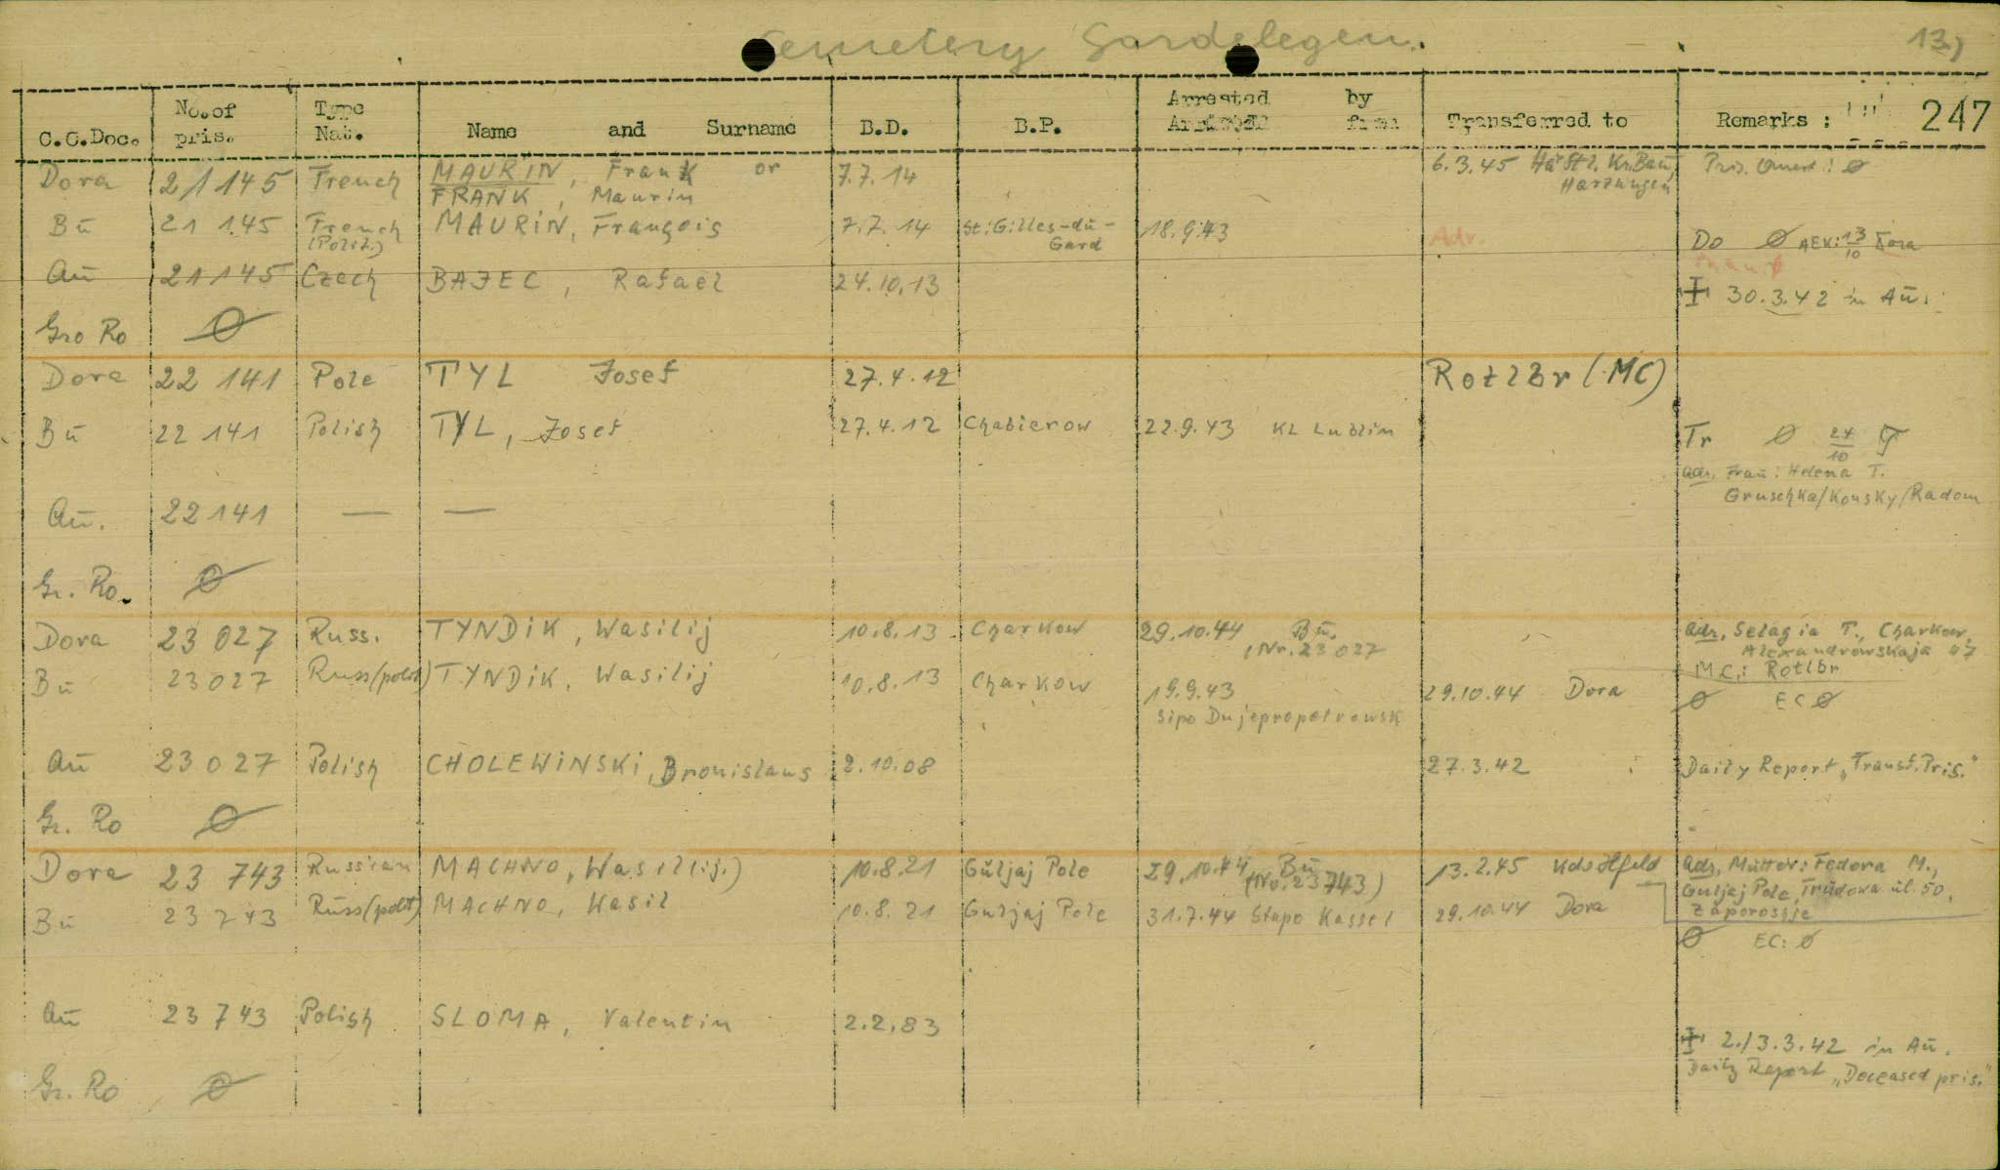 Cemetery Gardelegen.
13.)
C.C.Doc. No.of pris. Type Nat. Name and Surname B.D. B.P. Arrested by from Transferred to Remarks : 247
Dora 21145 French MAURIN, Frank or 7.7.14 6.3.45 Häftl. Kr. Bau, Pris. : Ø
FRANK, Maurin Harzungen
Bu 21 145 French MAURIN, François 7.7.14 St: Gilles-du- 18.9.43 Adr. Do Ø AEK: 13/10 Dora
(Polit.) Gard
Au 21145 Czech BAJEC, Rafael 24.10.13 30.3.42 in Au.
Gro Ro Ø
Dora 22 141 Pole TYL Josef 27.4.12 Rotlbr (MC)
Bu 22 141 Polish TYL, Josef 27.4.12 Chabierow 22.9.43 KL Lublin Tr Ø 24/10
adr. Frau: Helena T.
Gruschka/Konsky/Radom
Au. 22141 — —
Gr. Ro. Ø
Dora 23 027 Russ. TYNDIK, Wasilij 10.8.13 Charkow 29.10.44 Bu. adr. Selagia T., Charkow,
(Nr. 23 027 Alexandrowskaja 47
Bu 23027 Russ(polit) TYNDIK, Wasilij 10.8.13 Charkow 19.9.43 29.10.44 Dora MC.: Rotlbr
Sipo Dnjepropetrowsk Ø EC Ø
Au 23 027 Polish CHOLEWINSKI, Bronislaus 2.10.08 27.3.42 Daily Report „Transf. Pris."
Gr. Ro Ø
Dora 23 743 Russian MACHNO, Wasil(ij.) 10.8.21 Guljaj Pole 29.10.44 Bu 13.2.45 Adr. Mutter: Fedora M.,
(No. 23743) Guljaj Pole, Trudowa ul. 50,
Bu 23 743 Russ(polit) MACHNO, Wasil 10.8.21 Guljaj Pole 31.7.44 Stapo Kassel 29.10.44 Dora Zaporosje
Ø EC: Ø
Au 23 743 Polish SLOMA, Valentin 2.2.83 2./3.3.42 in Au.
Daily Report „Deceased pris."
Gr. Ro Ø